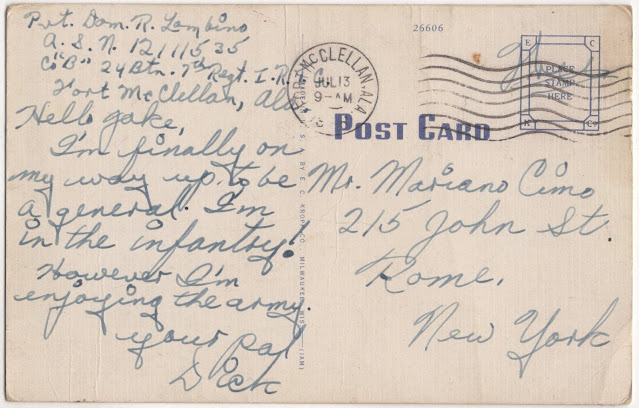 Pvt. Dom. R. Lombino
A. S. N. 12111535
Co "B" 24 Btn. 7th Regt. I. R. T. C.
Fort McClellan, Ala.
Hello Jake,
I'm finally on
my way up to be
a general. I'm
in the infantry!
However I'm
enjoying the army.
your pal
Dick
26606
FORT McCLELLAN, ALA.
JUL 13
9-AM
Free
E C
PLACE
STAMP
HERE
K Co
POST CARD
Mr. Mariano Cimo
215 John St.
Rome,
New York
BY E. C. KROPP CO., MILWAUKEE, WIS.